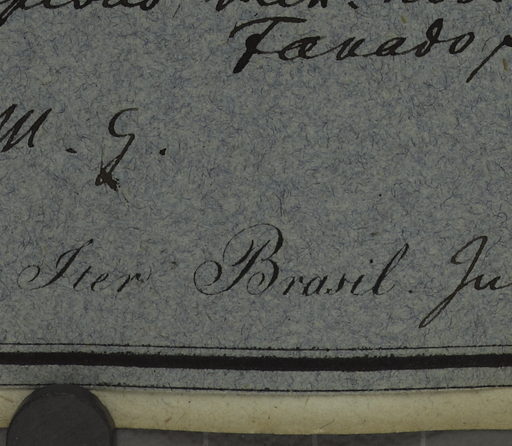 Fanado
M. G.
Iter Brasil. Ju